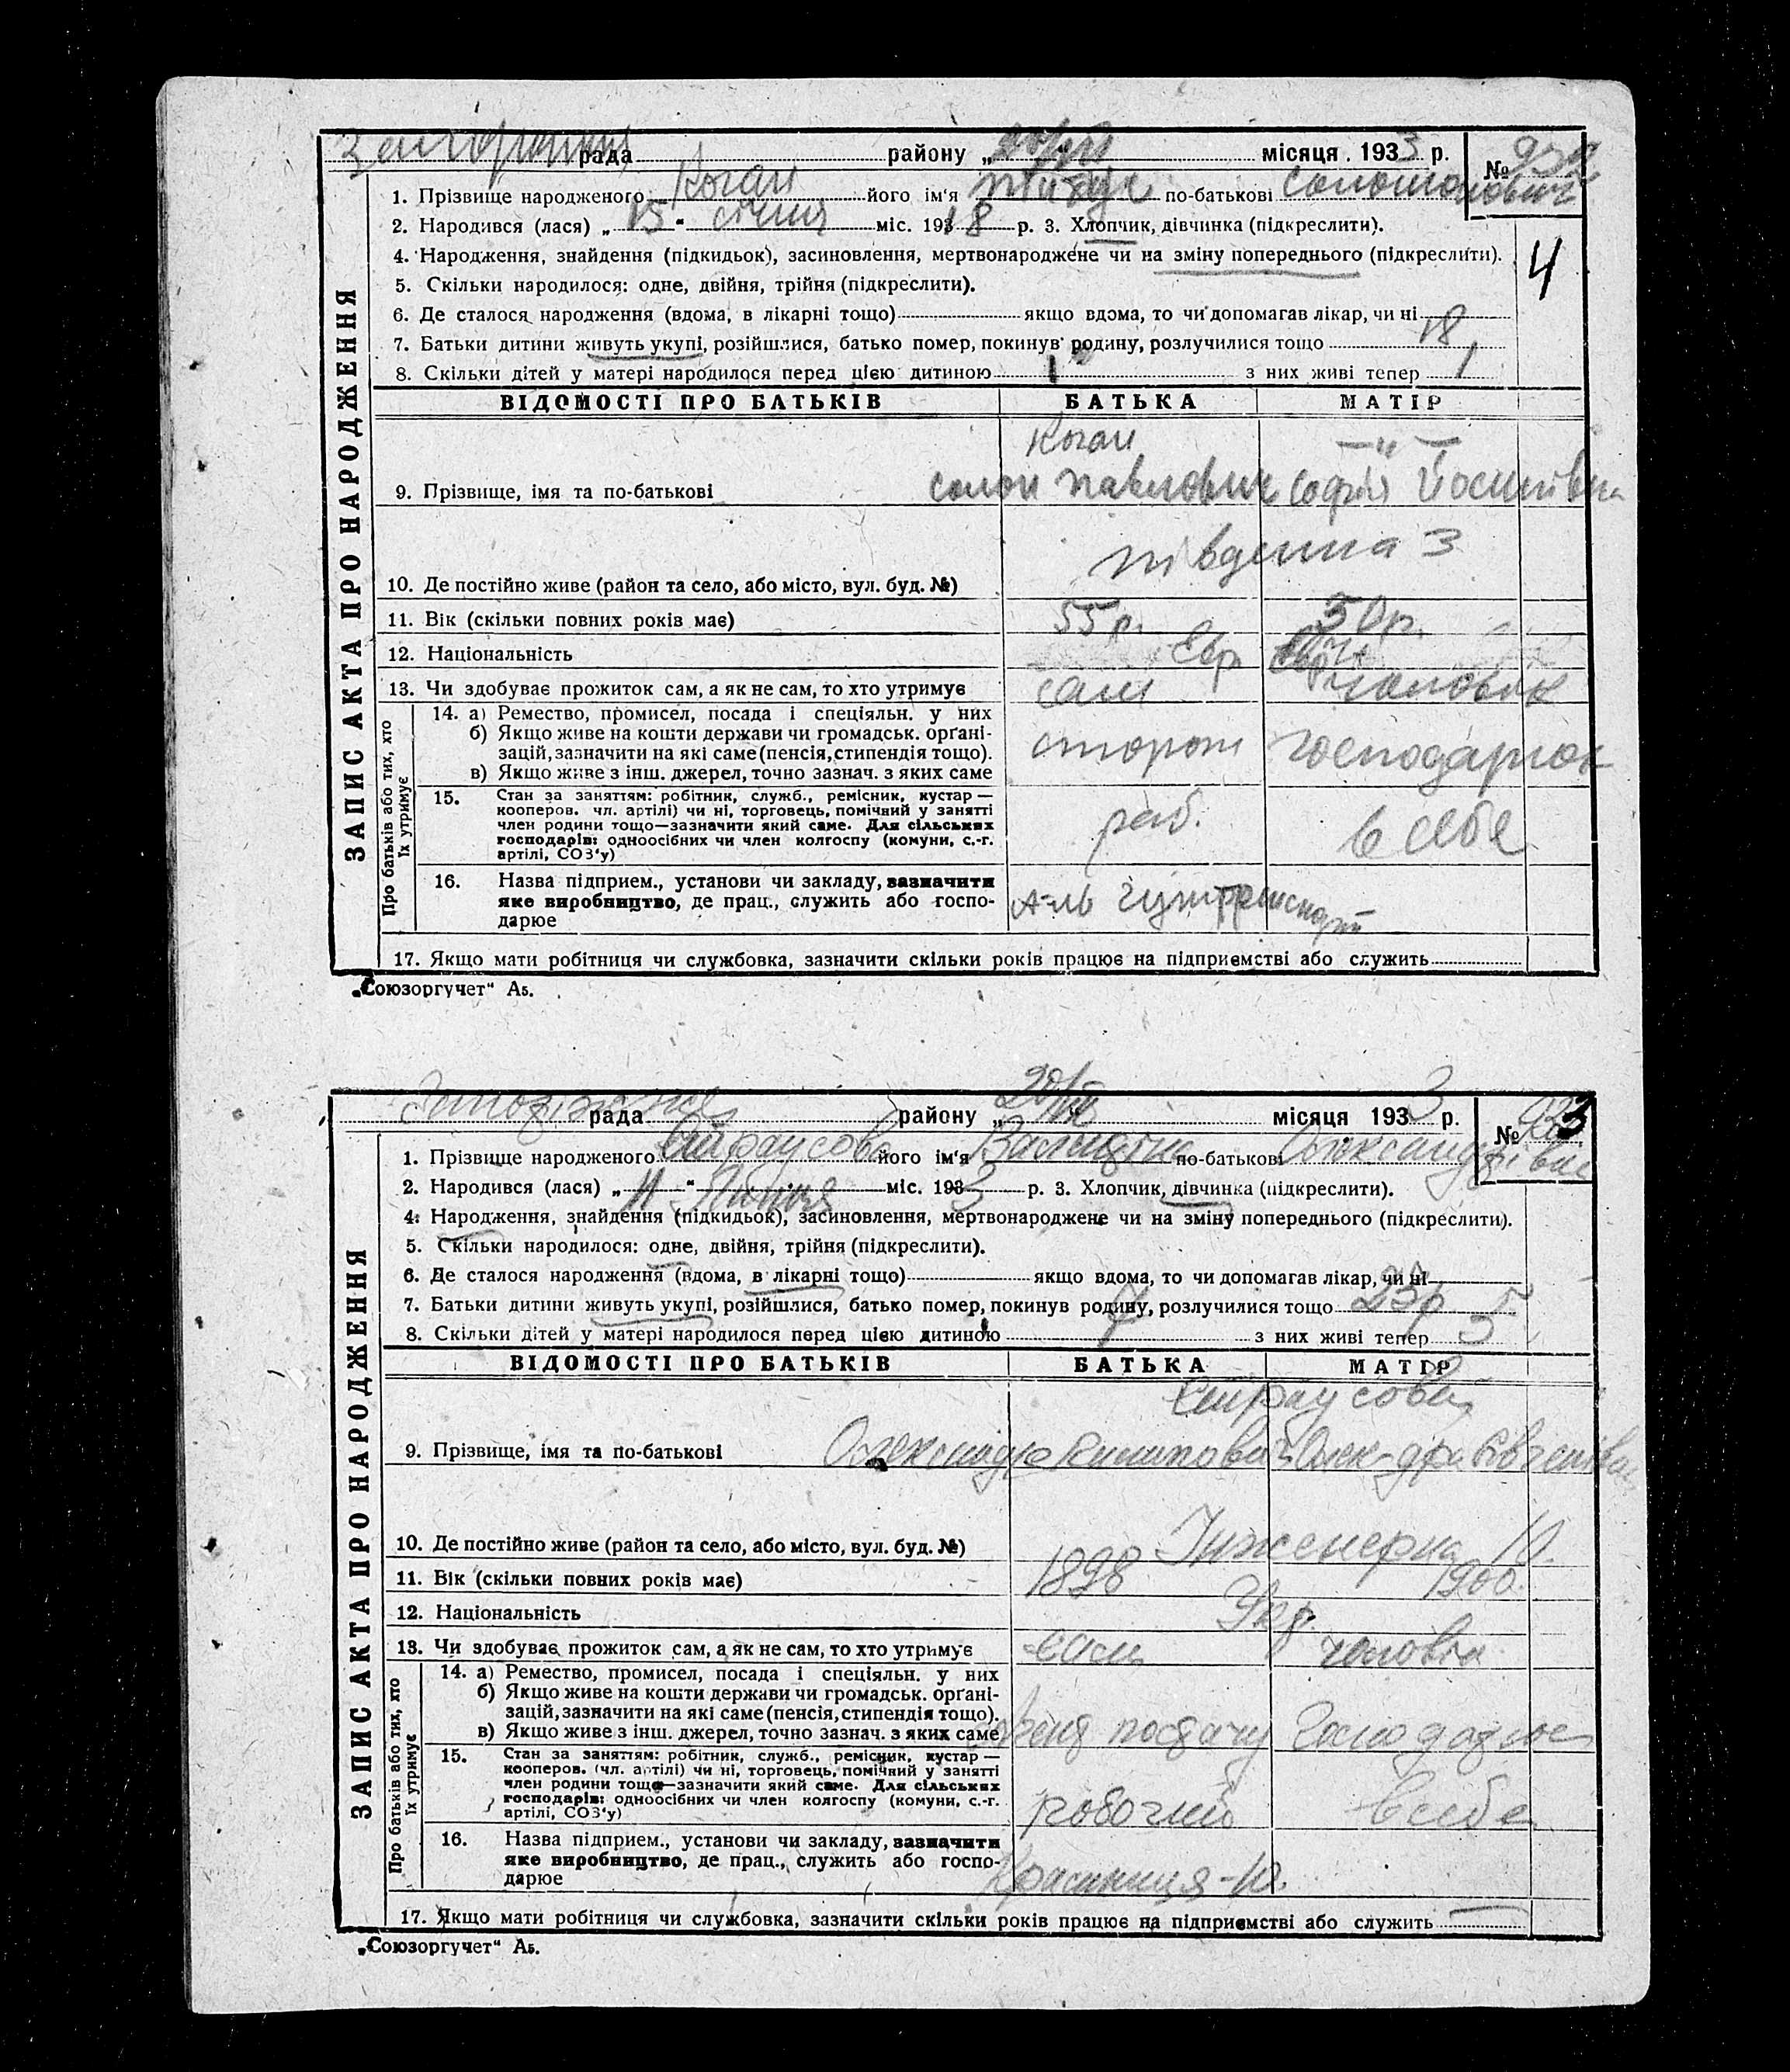 рада району „ " місяця . 1933 р. №
1. Прізвище народженого Коган його ім'я по-батькові Соломонович
2. Народився (лася) „ 15 " січня міс. 1918 р. 3. Хлопчик, дівчинка (підкреслити).
4. Народження, знайдення (підкидьок), засиновлення, мертвонароджене чи на зміну попереднього (підкреслити).
4
5. Скільки народилося: одне, двійня, трійня (підкреслити).
6. Де сталося народження (вдома, в лікарні тощо) якщо вдома, то чи допомагав лікар, чи ні
7. Батьки дитини живуть укупі, розійшлися, батько помер, покинув родину, розлучилися тощо 18
8. Скільки дітей у матері народилося перед цією дитиною 1 з них живі тепер 1
ЗАПИС АКТА ПРО НАРОДЖЕННЯ
ВІДОМОСТІ ПРО БАТЬКІВ БАТЬКА МАТІР
Коган —"—
9. Прізвище, імя та по-батькові Павлович Софія Йосипівна
10. Де постійно живе (район та село, або місто, вул. буд. №) Південна 3
11. Вік (скільки повних років має) 55 р. 50 р.
12. Національність Євр. Євр.
13. Чи здобуває прожиток сам, а як не сам, то хто утримує сам чоловік
Про батьків або тих, хто їх утримує
14. а) Ремество, промисел, посада і спеціяльн. у них
б) Якщо живе на кошти держави чи громадськ. орґані-
зацій, зазначити на які саме (пенсія, стипендія тощо). сторож господарює
в) Якщо живе з інш. джерел, точно зазнач. з яких саме
15. Стан за заняттям: робітник, служб., ремісник, кустар —
кооперов. чл. артілі) чи ні, торговець, помічний у занятті
член родини тощо—зазначити який саме. Для сільських
господарів: одноосібних чи член колгоспу (комуни, с.-г.
артілі, СОЗ'у)
раб. в себе
16. Назва підприєм., установи чи закладу, зазначити
яке виробництво, де прац., служить або госпо-
дарює
17. Якщо мати робітниця чи службовка, зазначити скільки років працює на підприємстві або служить
„Союзоргучет" А5.
рада району „ " місяця 1933 р. №
1. Прізвище народженого його ім'я Валентина по-батькові Олександрівна
2. Народився (лася) „ 11 " міс. 1933 р. 3. Хлопчик, дівчинка (підкреслити).
4. Народження, знайдення (підкидьок), засиновлення, мертвонароджене чи на зміну попереднього (підкреслити).
5. Скільки народилося: одне, двійня, трійня (підкреслити).
6. Де сталося народження (вдома, в лікарні тощо) якщо вдома, то чи допомагав лікар, чи ні
7. Батьки дитини живуть укупі, розійшлися, батько помер, покинув родину, розлучилися тощо
8. Скільки дітей у матері народилося перед цією дитиною 7 з них живі тепер 5
ЗАПИС АКТА ПРО НАРОДЖЕННЯ
ВІДОМОСТІ ПРО БАТЬКІВ БАТЬКА МАТІР
9. Прізвище, імя та по-батькові
10. Де постійно живе (район та село, або місто, вул. буд. №) Інженерна 10.
11. Вік (скільки повних років має) 1898 1900.
12. Національність Укр.
13. Чи здобуває прожиток сам, а як не сам, то хто утримує сам чоловік
Про батьків або тих, хто їх утримує
14. а) Ремество, промисел, посада і спеціяльн. у них
б) Якщо живе на кошти держави чи громадськ. орґані-
зацій, зазначити на які саме (пенсія, стипендія тощо).
в) Якщо живе з інш. джерел, точно зазнач. з яких саме агент постачу Господарює
15. Стан за заняттям: робітник, служб., ремісник, кустар —
кооперов. (чл. артілі) чи ні, торговець, помічний у занятті
член родини тощо—зазначити який саме. Для сільських
господарів: одноосібних чи член колгоспу (комуни, с.-г.
артілі, СОЗ'у)
робочий в себе
16. Назва підприєм., установи чи закладу, зазначити
яке виробництво, де прац., служить або госпо-
дарює
17. Якщо мати робітниця чи службовка, зазначити скільки років працює на підприємстві або служить
„Союзоргучет" А5.